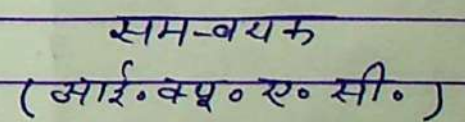 समन्वयक
(आई॰ क्यू॰ ए॰ सी॰)